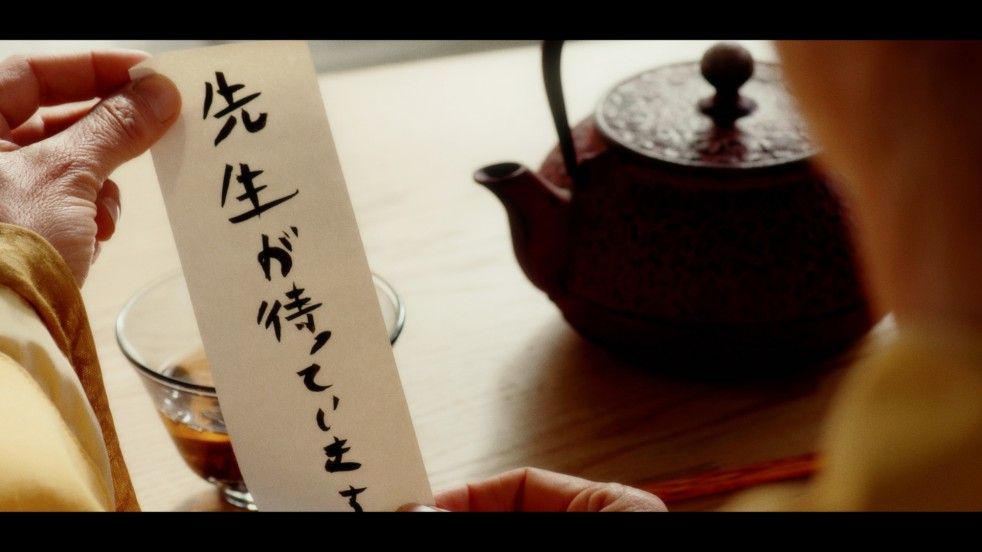 先生が待っています